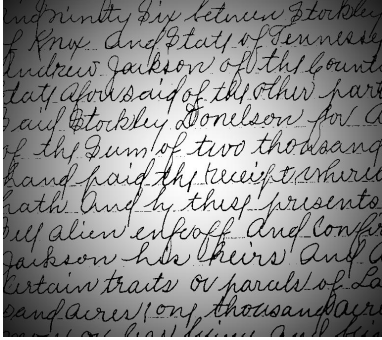 ninety Six between Stockley
of Knox and State of Tennessee
Andrew Jackson of the Count
tate aforesaid of the other part
Said Stockley Donelson for a
of the Sum of two thousand
hand paid the receipt where
hath and by these presents
ell alien enfeoff and Confir
Jackson his heirs and a
Certain traits or parcels of La
sand acres one thousand acre